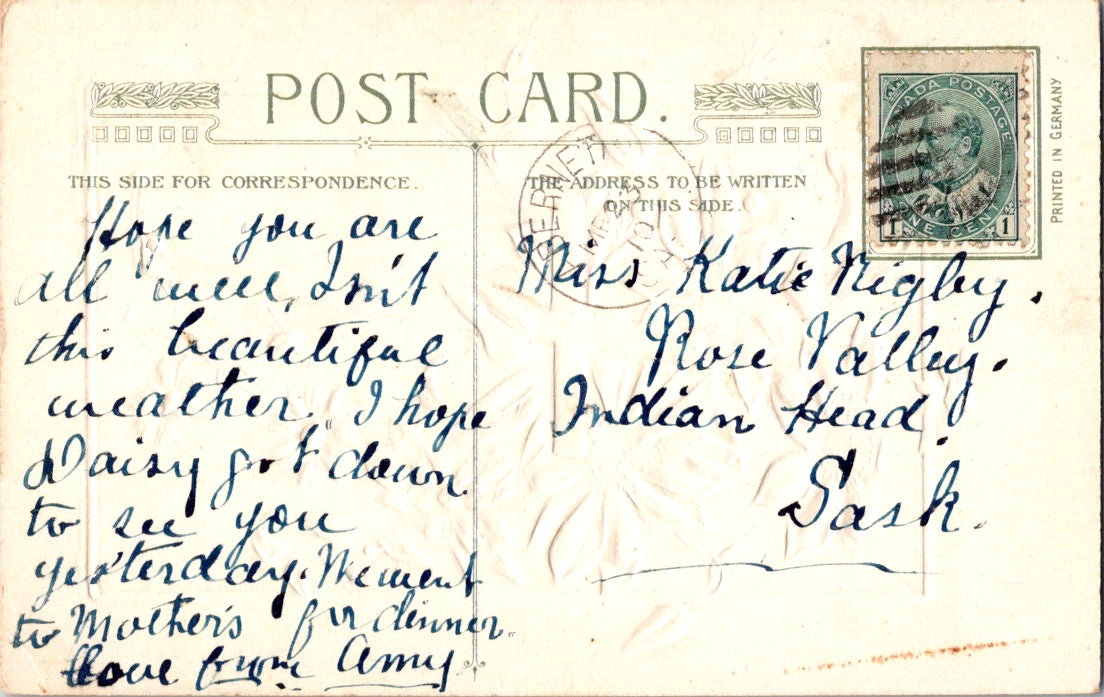 POST CARD.
THIS SIDE FOR CORRESPONDENCE.
Hope you are
all well, Isn't
this beautiful
weather. I hope
Daisy got down
to see you
yesterday. We went
to Mother's for dinner.
Love from Amy
THE ADDRESS TO BE WRITTEN
ON THIS SIDE.
Miss Katie Rigby.
Rose Valley.
Indian Head.
Sask.
CANADA POSTAGE
ONE CENT
1 1
PRINTED IN GERMANY
10